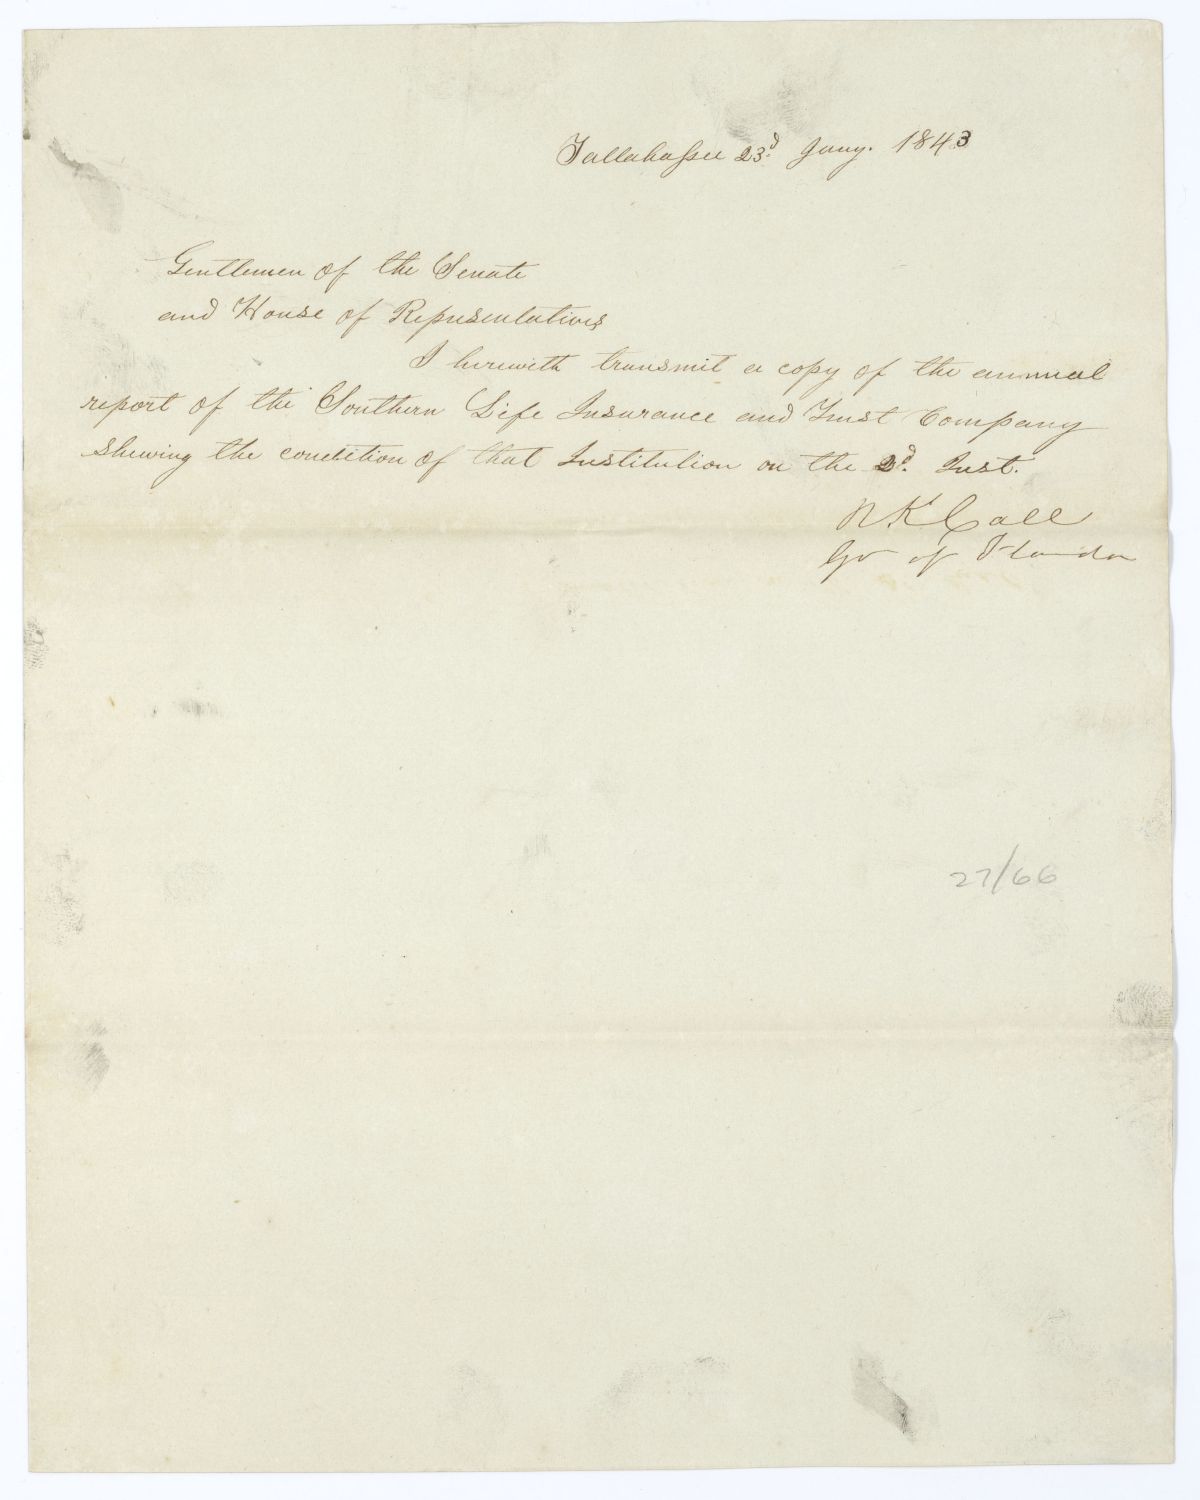 Tallahassee 23d. Jany. 1843
Gentlemen of the Senate
and House of Representatives
I herewith transmit a copy of the annual
report of the Southern Life Insurance and Trust Company
shewing the condition of that Institution on the 2d. Inst.
R K Call
Gov of Florida
27/66